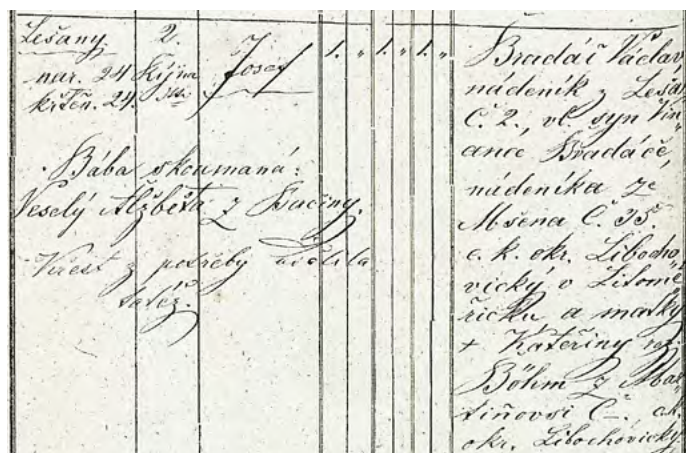 Lešany 2. Josef 1. „ 1. „ 1. „
nar. 24 Října
křtěn. 24.
Bába zkoumaná:
Veselý Alžběta z
Křest z potřeby udělila
táž.
Bradáč Václav
nádeník z Lešan
Č. 2., vl. syn Vin„
ance Bradáče,
nádeníka ze
Mšena Č. 35.
c. k. okr. Libocho„
vický v Litomě„
řicku a matky
+ Kateřiny roz.
Böhm z Mar„
tiňovsi Č –. c.k.
okr. Libochovický